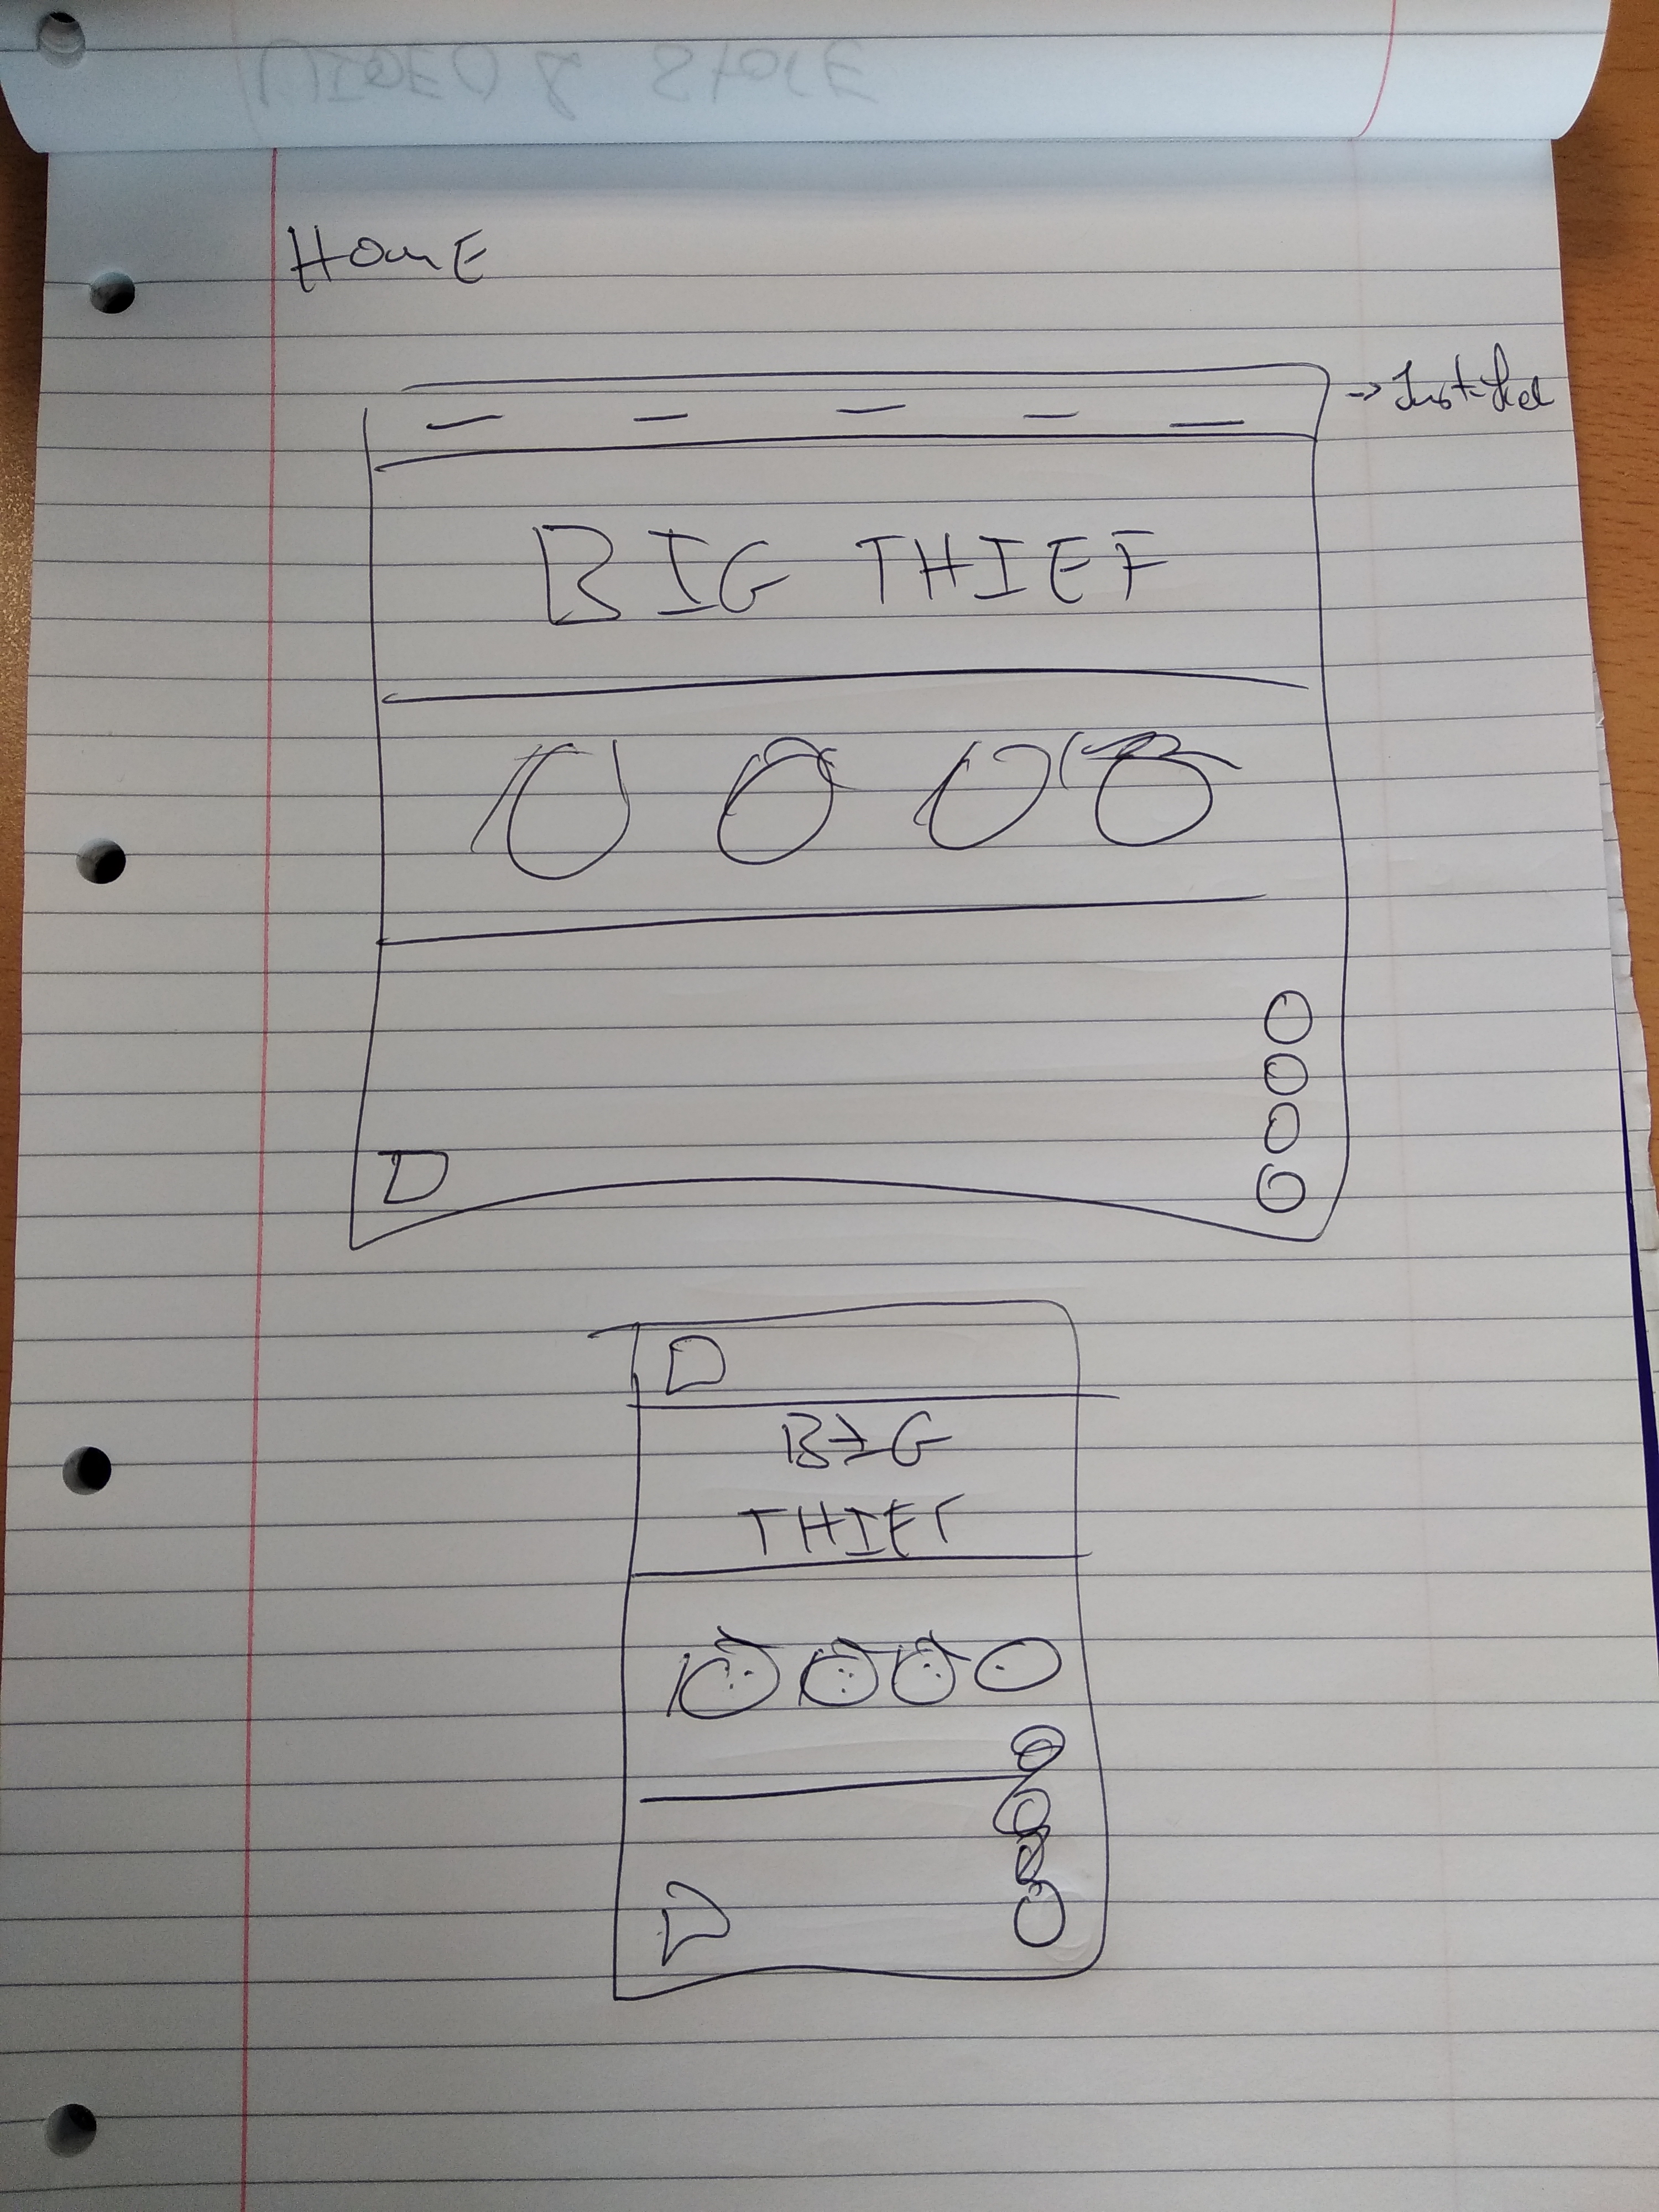 Home
→ Justified
BIG THIEF
BIG
THIEF